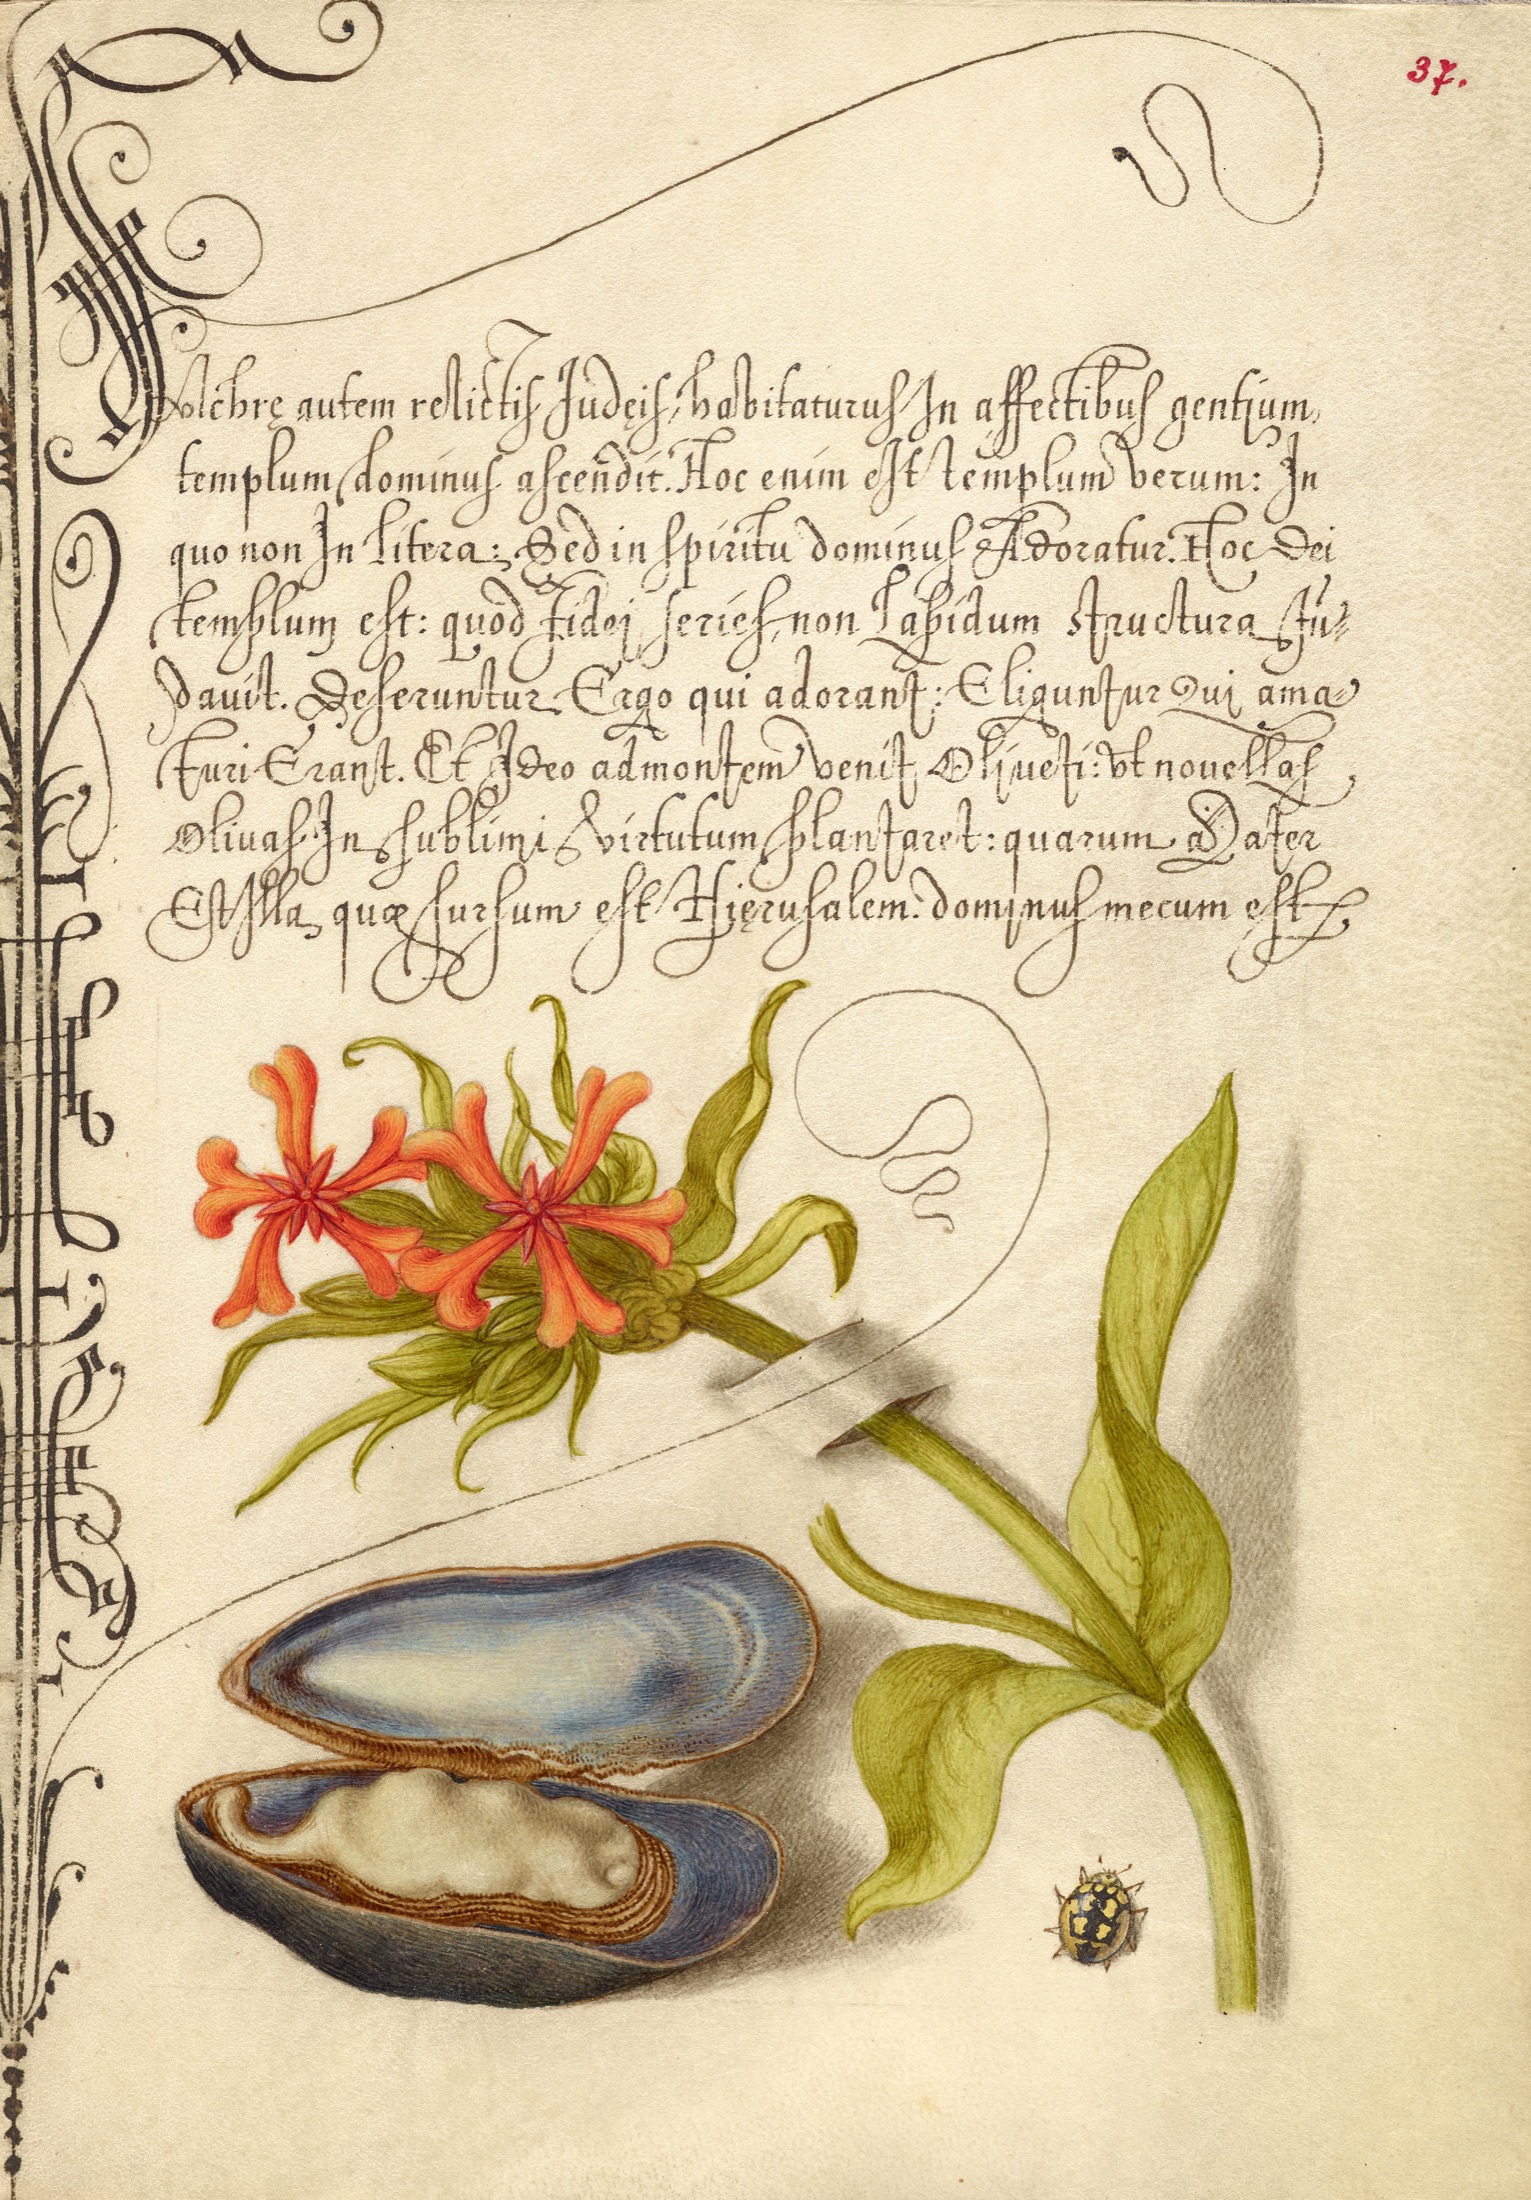 37.
Pulchrę autem relictis Judęis, habitaturus In affectibus gentium,
templum dominus ascendit. Hoc enim est templum verum: In
quo non In litera: Sed in spiritu dominus Adoratur. Hoc Dei
templum est: quod fidei series, non Lapidum structura fun=
davit. Deseruntur Ergo qui adorant: Eliguntur Qui ama
turi Erant. Et Ideo ad montem venit Oliueti: vt nouellas
Oliuas In sublimi virtutum plantaret: quarum Mater
Est Illa, quæ sursum est Hierusalem. dominus mecum est